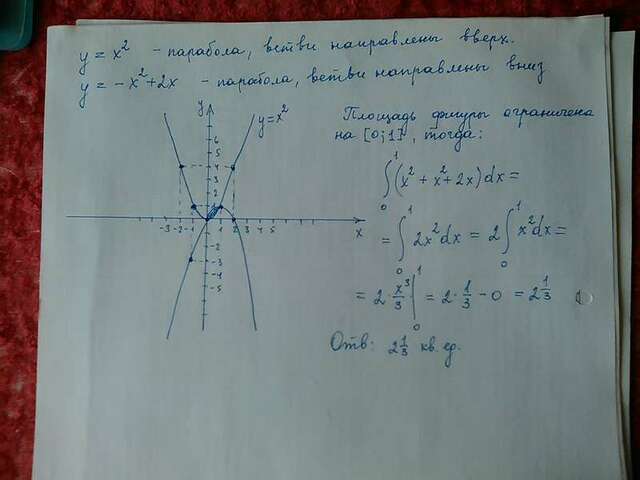 y = x² - парабола, ветви направлены вверх.
y = -x²+2x - парабола, ветви направлены вниз
y
y=x²
6
5
4
3
2
1
-3 -2 -1 1 2 3 4 5
x
-3
-5
Площадь фигуры ограничена
на [0;1], тогда:
∫₀¹(x² + x² + 2x)dx =
= ∫₀¹ 2x²dx = 2∫₀¹ x²dx =
= 2·x³/3 |₀¹ = 2·1/3 - 0 = 2 1/3
Отв: 2 1/3 кв. ед.